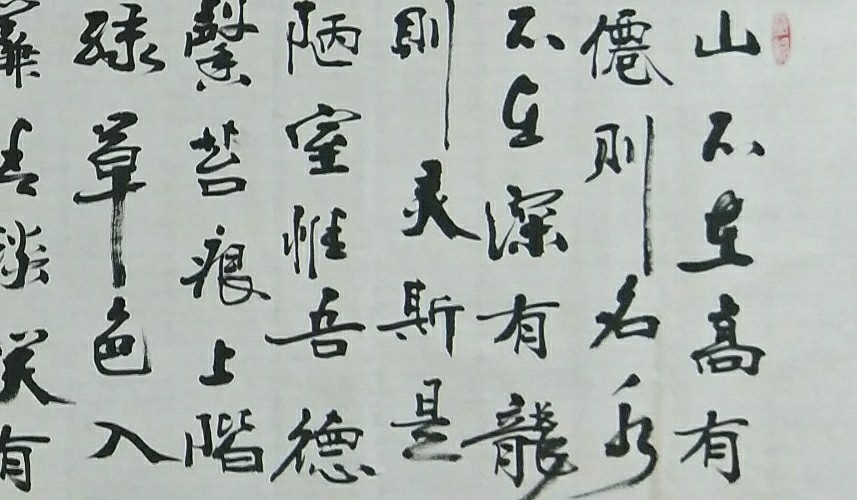 山不在高有
僊則名水
不在深有龍
則灵斯是
陋室惟吾德
馨苔痕上階
綠草色入
簾青談笑有